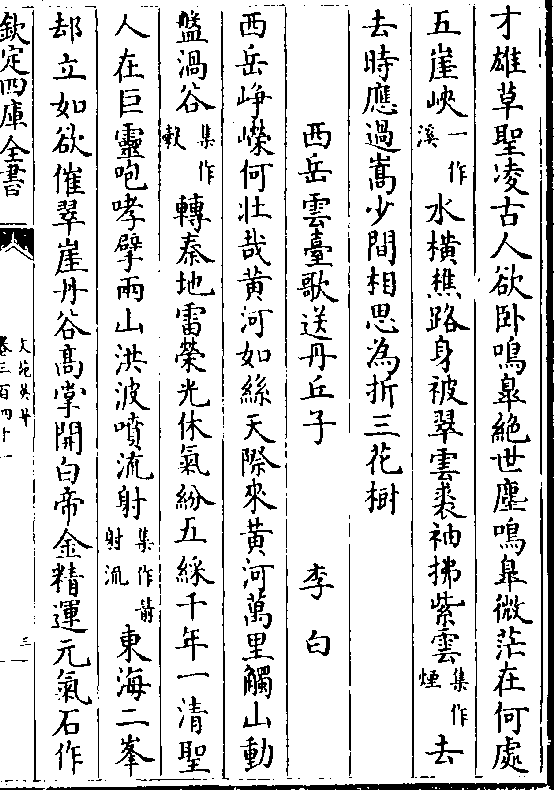 才雄草聖凌古人欲卧鳴臯絶世塵鳴臯微茫在何處
五崖峽一作溪水横樵路身被翠雲裘袖拂紫雲集作煙去
去時應過嵩少間相思為折三花樹
西岳雲臺歌送丹丘子　李白
西岳崢嶸何壯哉黄河如絲天際來黄河萬里觸山動
盤渦谷集作轂轉秦地雷榮光休氣紛五綵千年一清聖
人在巨靈咆哮擘兩山洪波噴流射集作箭射流東海二峯
却立如欲催翠崖丹谷髙掌開白帝金精運元氣石作
欽定四庫全書
文苑英華
卷三百四十一
三